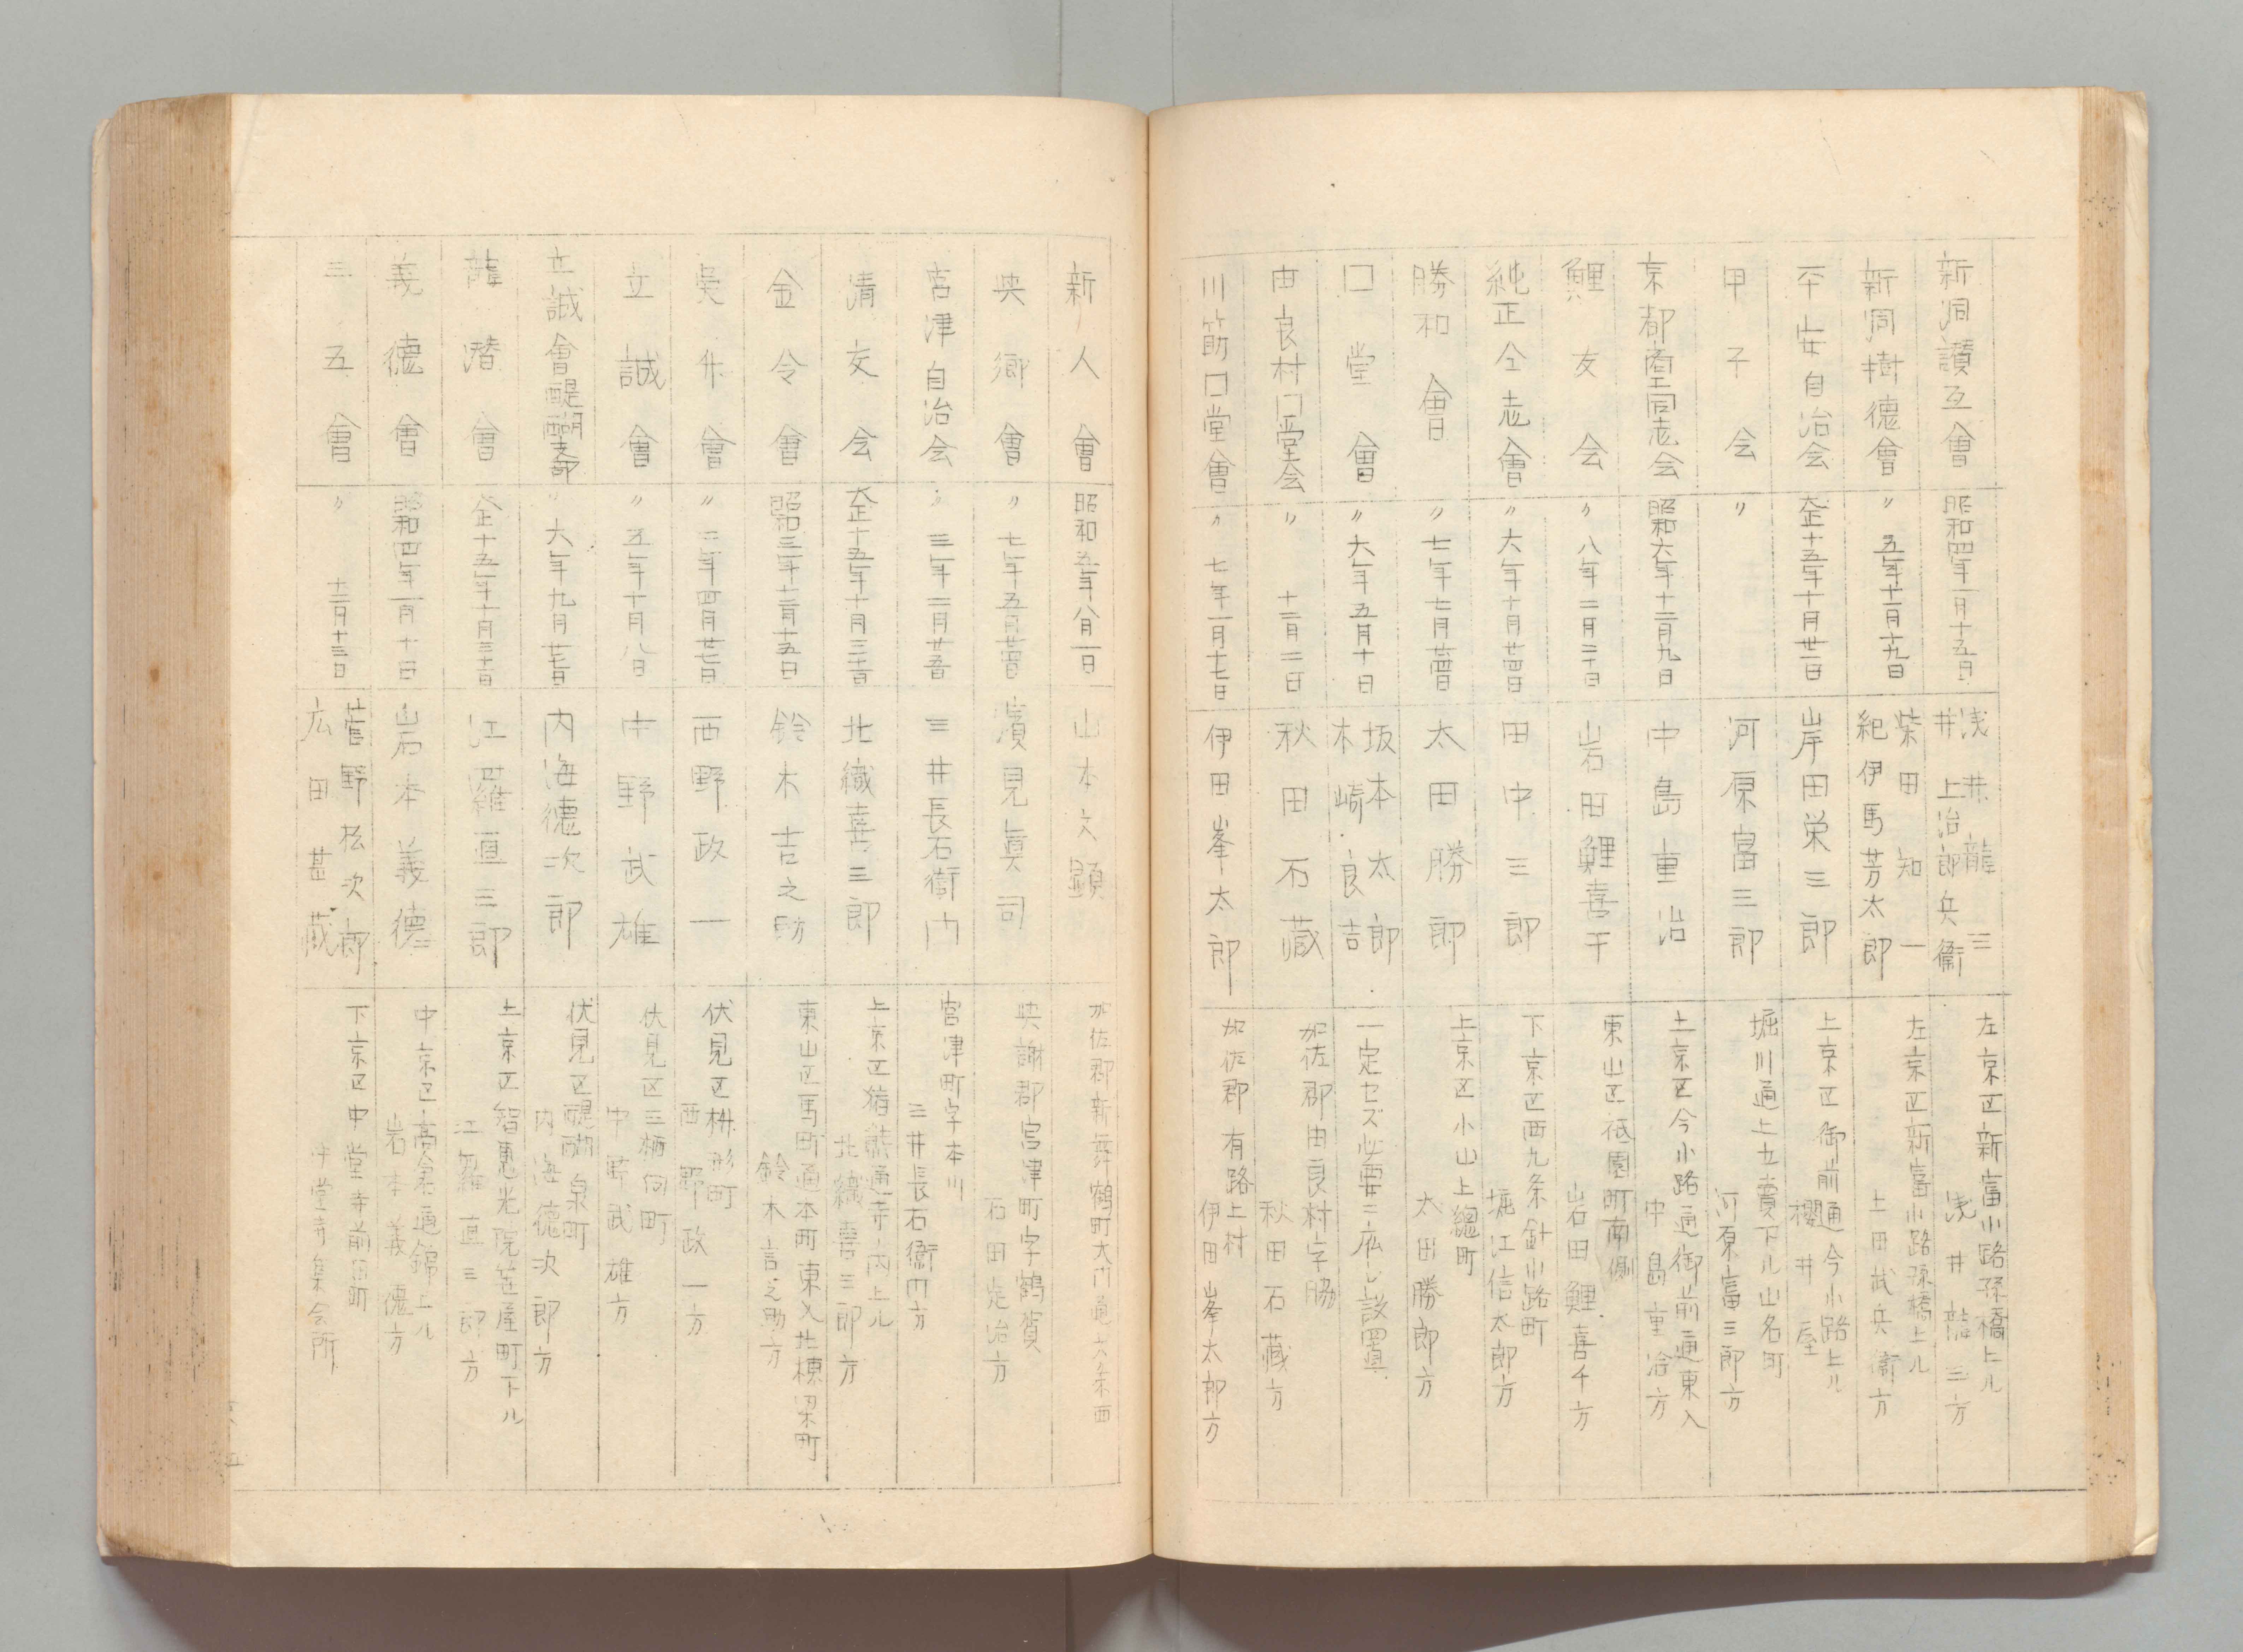 新洞讃互會
昭和四年一月十五日
浅井龍三
井上治郎兵衞
左京区新富小路孫橋上ル
浅井龍三方
新洞樹德會
〃五年十一月十九日
柴田知一
紀伊馬芳太郎
左京区新富小路孫橋上ル
土田武兵衞方
平安自治会
大正十五年十月廿一日
岸田栄三郎
上京区御前通今小路上ル
櫻井屋
甲子会
〃
河原富三郎
堀川通上立賣下ル山名町
河原富三郎方
京都商工同志会
昭和六年十二月九日
中島重治
上京区今小路通御前通東入
中島重治方
鯉友会
〃八年二月二十日
岩田鯉喜千
東山区祇園町南側
岩田鯉喜千方
純正仝志會
〃六年十月廿四日
田中三郎
下京区西九条針小路町
堀江信太郎方
勝和會
〃七年七月廿四日
太田勝郎
上京区小山上總町
太田勝郎方
口堂會
〃六年五月十日
坂本太郎
木崎良吉
一定セズ必要ニ応ジ設置
由良村口堂会
〃十二月二日
秋田石藏
加佐郡由良村字脇
秋田石藏方
川筋口堂會
〃七年一月十七日
伊田峯太郎
加佐郡有路上村
伊田峯太郎方
新人會
昭和五年八月一日
山本文顕
加佐郡新舞鶴町大門通六条西
與郷會
〃七年五月廿四日
濱見眞司
與謝郡宮津町字鶴賀
石田定治方
宮津自治会
〃三年二月廿五日
三井長右衞门
宮津町字本川
三井長右衞門方
清友会
大正十五年十月三十一日
北織喜三郎
上京区猪熊通寺ノ内上ル
北織喜三郎方
金令會
昭和三年十二月十五日
鈴木吉之助
東山区馬町通本町東入北棟梁町
鈴木吉之助方
吳舛會
〃二年四月廿七日
西野政一
伏見区枡形町
西野政一方
立誠會
〃五年十月八日
中野武雄
伏見区三栖向町
中野武雄方
立誠會醍醐支部
〃六年九月廿七日
内海德次郎
伏見区醍醐泉町
内海德次郎方
龍潛會
大正十五年十月三十一日
江羅直三郎
上京区智惠光院笹屋町下ル
江羅直三郎方
義德會
昭和四年一月十一日
岩本義德
中京区高倉通錦上ル
岩本義德方
三五會
〃十二月十三日
菅野松次郎
広田甚藏
下京区中堂寺前田町
中堂寺集会所